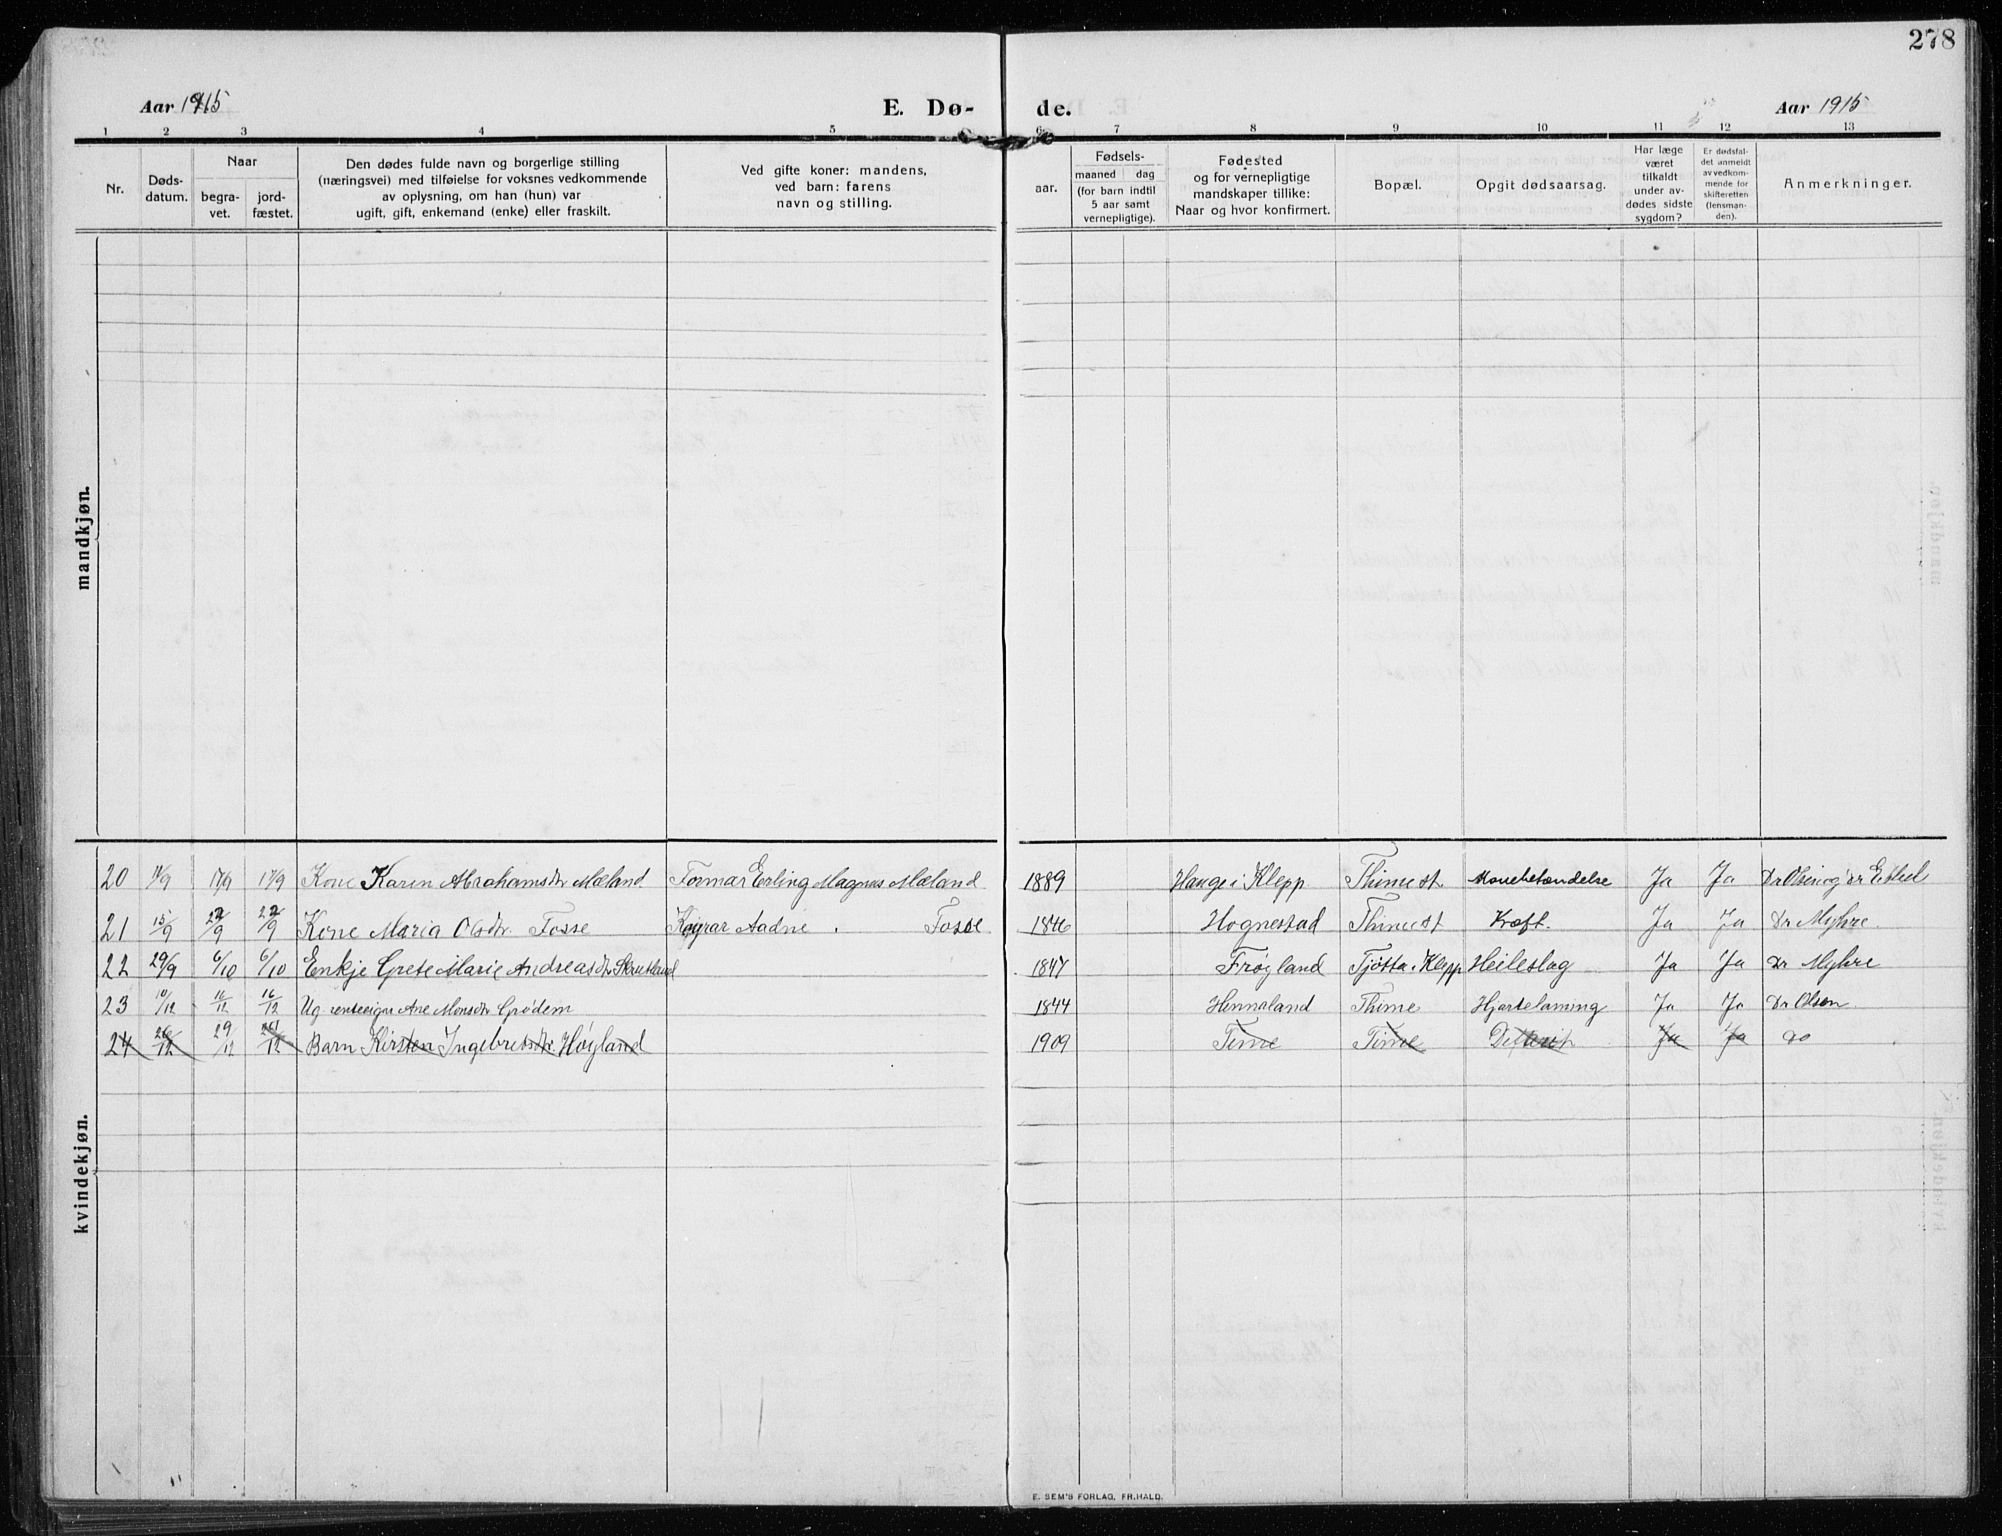 278
Aar 1915
E. Dø-
de.
Aar 1915
1 2 3 4 5 6 7 8 9 10 11 12 13
Nr.
Døds-
datum.
Naar
begra-
vet.
jord-
fæstet.
Den dødes fulde navn og borgerlige stilling
(næringsvei) med tilføielse for voksnes vedkommende
av oplysning, om han (hun) var
ugift, gift, enkemand (enke) eller fraskilt.
Ved gifte koner: mandens,
ved barn: farens
navn og stilling.
aar.
Fødsels-
maaned dag
(for barn indtil
5 aar samt
vernepligtige).
Fødested
og for vernepligtige
mandskaper tillike:
Naar og hvor konfirmert.
Bopæl.
Opgit dødsaarsag.
Har læge
været
tilkaldt
under av-
dødes sidste
sygdom?
Er dødsfal-
det anmeldt
av vedkom-
mende for
skifteretten
(lensman-
den).
Anmerkninger.
mandkjøn.
kvindekjøn.
20 11/9 17/9 17/9 Kone Karen Abrahamsdtr Mæland Formar Erling Magnus Mæland 1889 Hauge i Klepp Thimest Mavebetændelse Ja Ja Dr Olsen og dr
21 15/9 22/9 22/9 Kone Maria Olsdtr. Fosse Aadne Fosse 1846 Hognestad Thimest Kræft. Ja Ja Dr Myhre.
22 29/9 6/10 6/10 Enkje Grete Marie Andreasdtr Skrutland 1847 Frøyland Tjøtta i Klepp Heileslag Ja Ja Dr Myhre
23 10/12 16/12 16/12 Ug. Ane Monsdtr Grødem 1844 Hennaland Thime Hjertelaming Ja Ja Dr Olsen
24 26/12 29/12 Barn Kirsten Ingebretsdtr Høyland 1909 Time Time Ja Ja do
E. SEM'S FORLAG, FR.HALD.